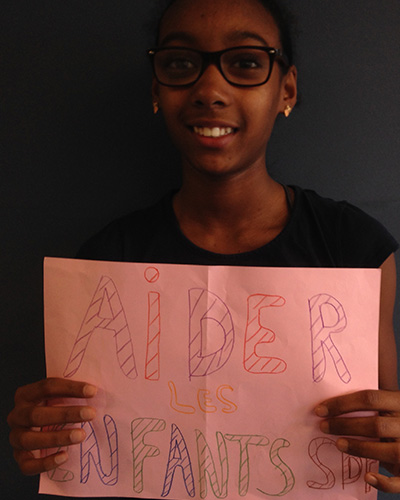 AiDER
LES
ENFANTS